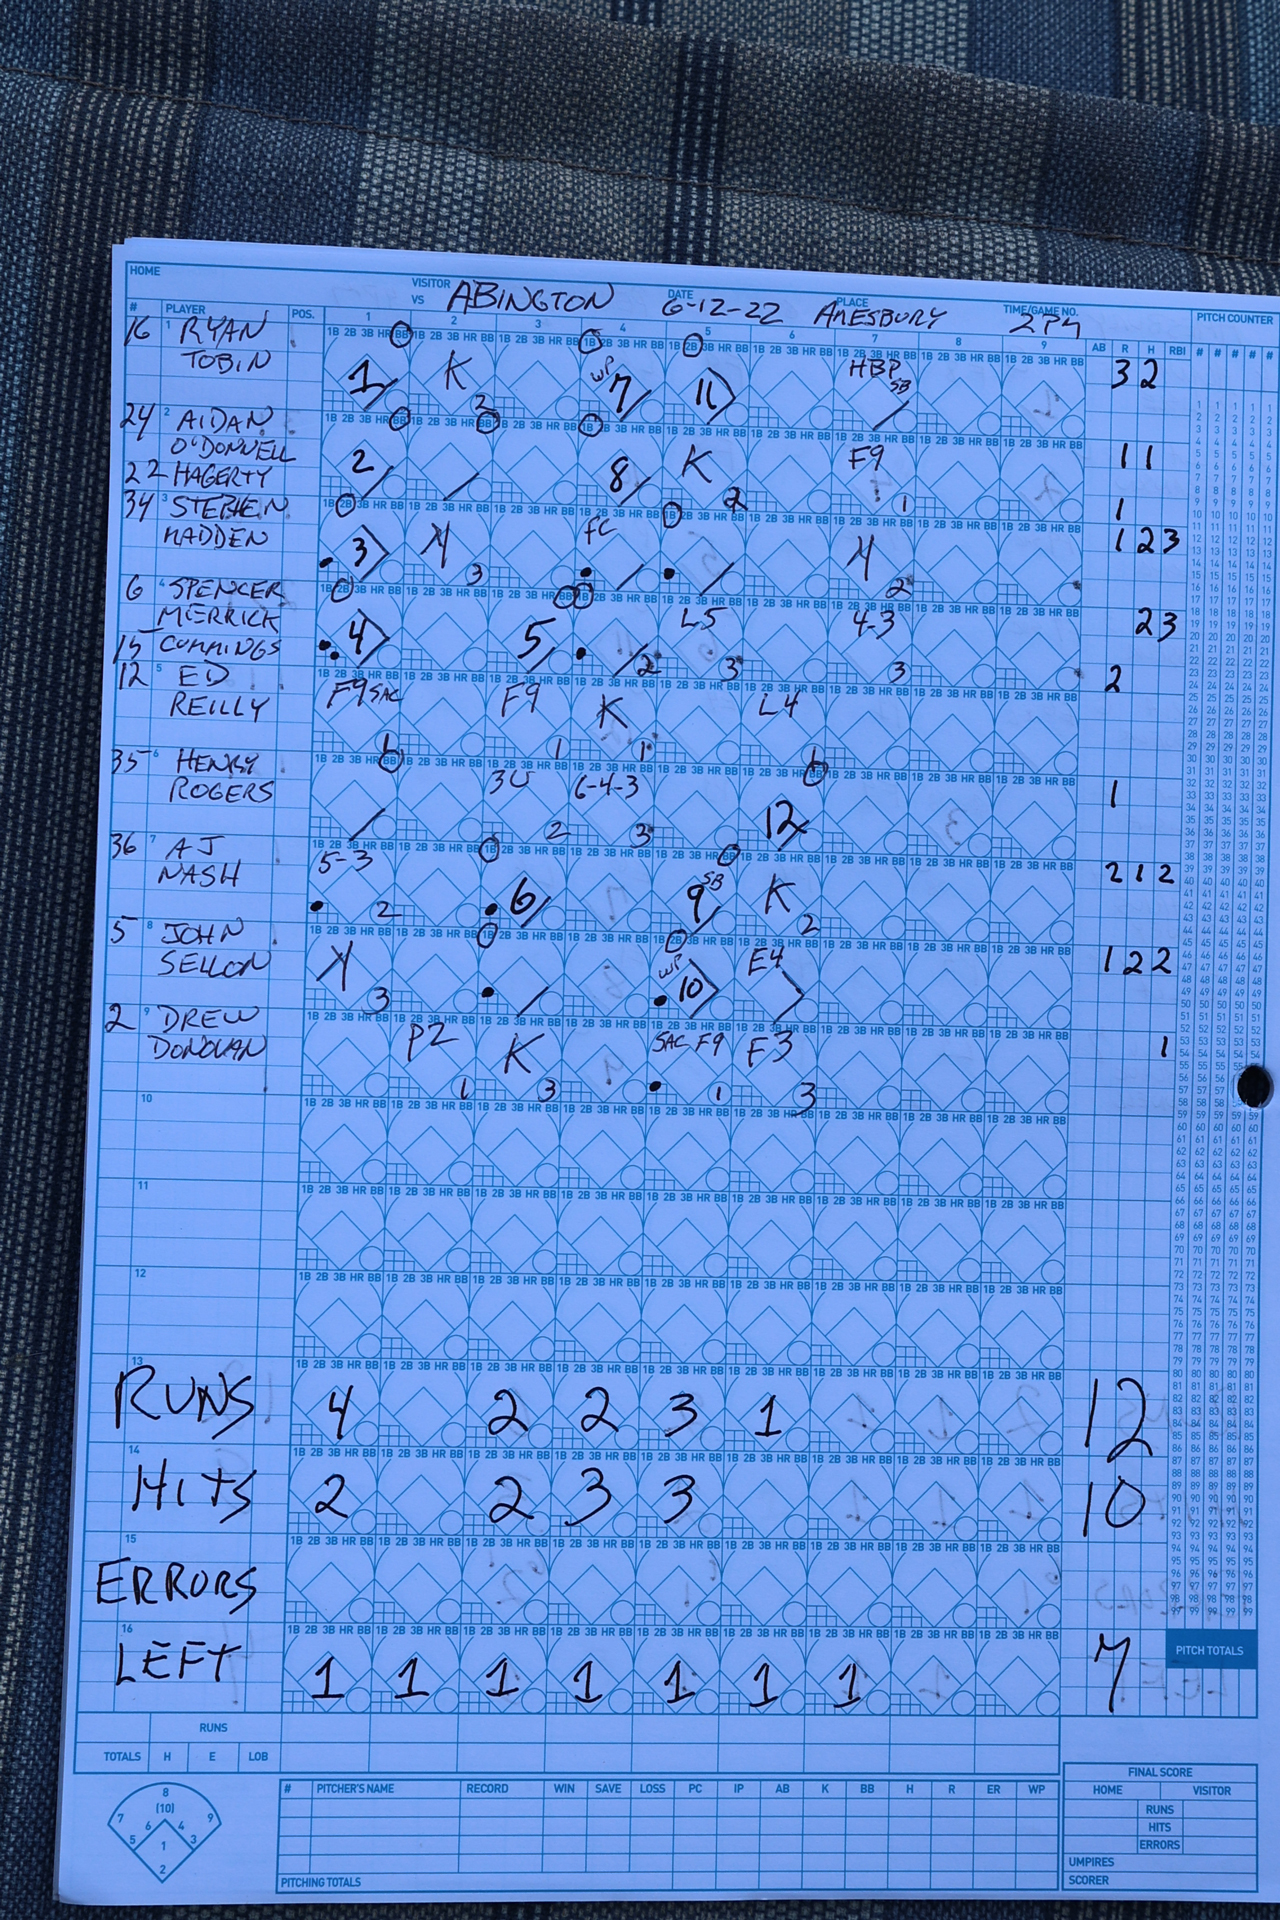 HOME
VISITOR
VS ABINGTON
DATE 6-12-22
PLACE AMESBURY
TIME/GAME NO. 2PM
# PLAYER POS. 1 2 3 4 5 6 7 8 9 AB R H RBI
PITCH COUNTER
# # # # #
16 1 RYAN
TOBIN
1B 2B 3B HR BB
1 K 2 WP 7 11 HBP SB 3 2
24 2 AIDAN
O'DONNELL
22 HAGERTY
2 8 K 2 F9 1 1 1
1
34 3 STEPHEN
MADDEN
3 3 FC 2 1 2 3
6 4 SPENCER
MERRICK
15 CUMMINGS
4 5 2 L5 3 4-3 3 2 3
2
12 5 ED
REILLY
F9 SAC 1 F9 1 K 1 L4 1
35 6 HENRY
ROGERS
3U 2 6-4-3 3 12 1
36 7 AJ
NASH
5-3 2 6 SB 9 K 2 2 1 2
5 8 JOHN
SELLON
3 WP 10 E4 1 2 2
2 9 DREW
DONOVAN
P2 1 K 3 SAC F9 1 F3 3 1
10
11
12
13
RUNS 4 2 2 3 1 12
14
HITS 2 2 3 3 10
15
ERRORS
16
LEFT 1 1 1 1 1 1 1 7
PITCH TOTALS
RUNS
TOTALS H E LOB
8
7 (10) 9
6 4
5 1 3
2
# PITCHER'S NAME RECORD WIN SAVE LOSS PC IP AB K BB H R ER WP
PITCHING TOTALS
FINAL SCORE
HOME VISITOR
RUNS
HITS
ERRORS
UMPIRES
SCORER